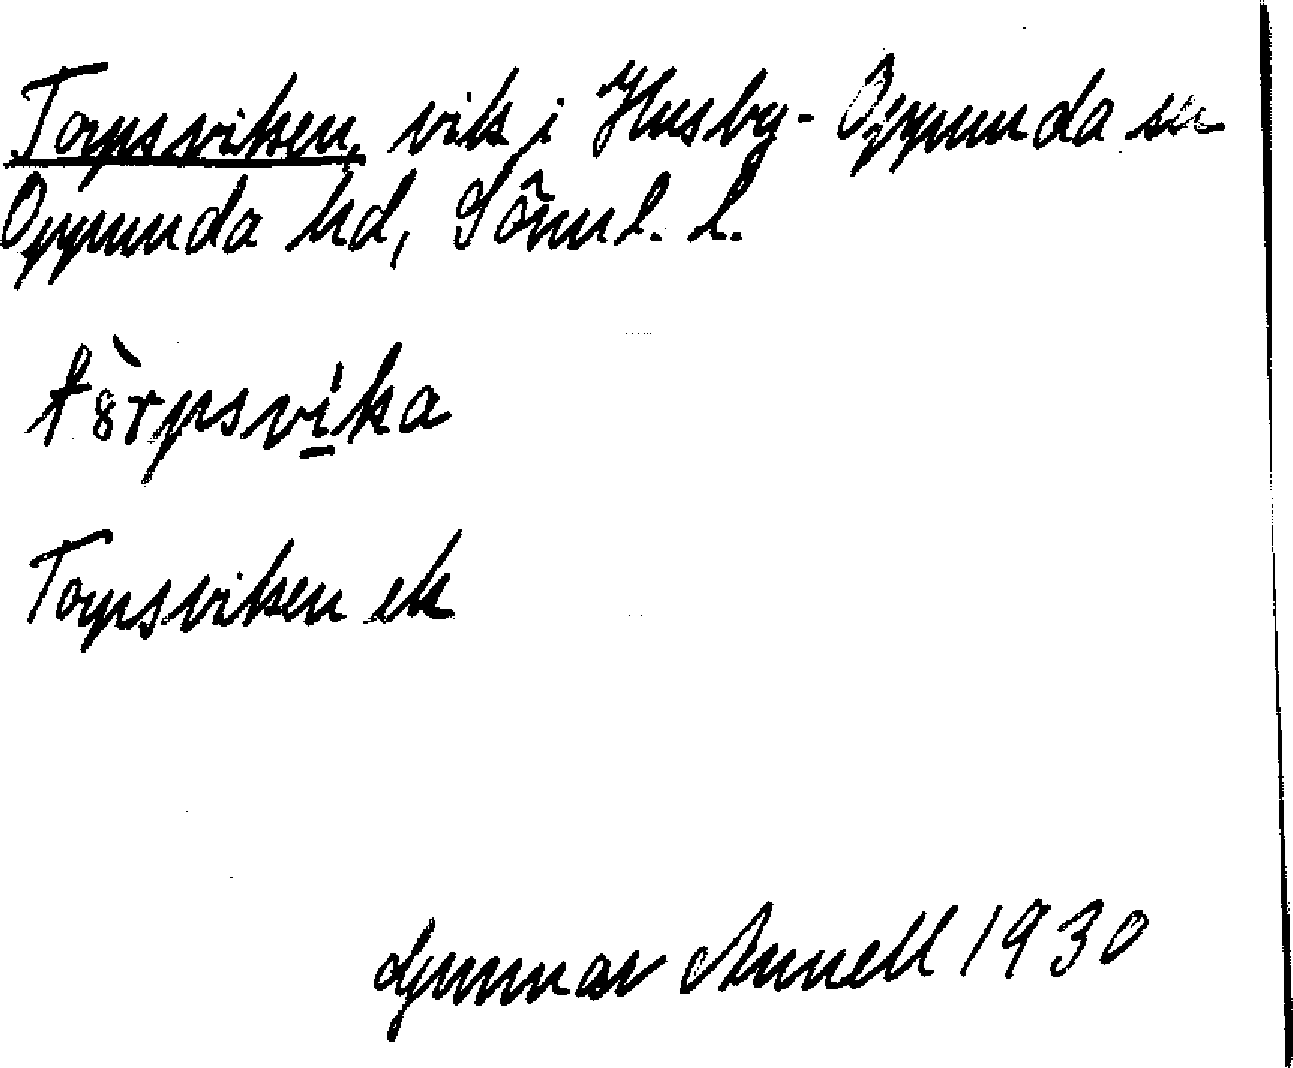 Torpsviken, vik i Husby-Oppunda sn
Oppunda hd, Sörml. l.
tȣ̀rpsvi̲ka
Torpsviken ek
Gunnar Annell 1930